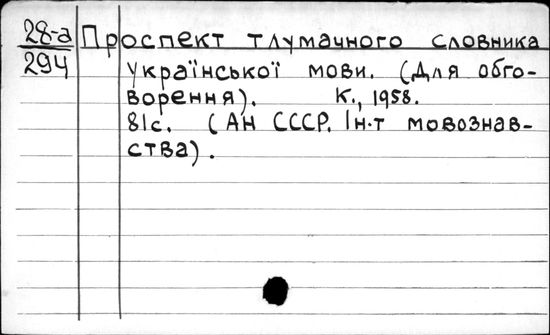 28-а Проспект тлумачного словника
294 української мови. (Для обго-
ворення). К., 1958.
81с. (АН СССР. Ін-т мовознав-
ства).